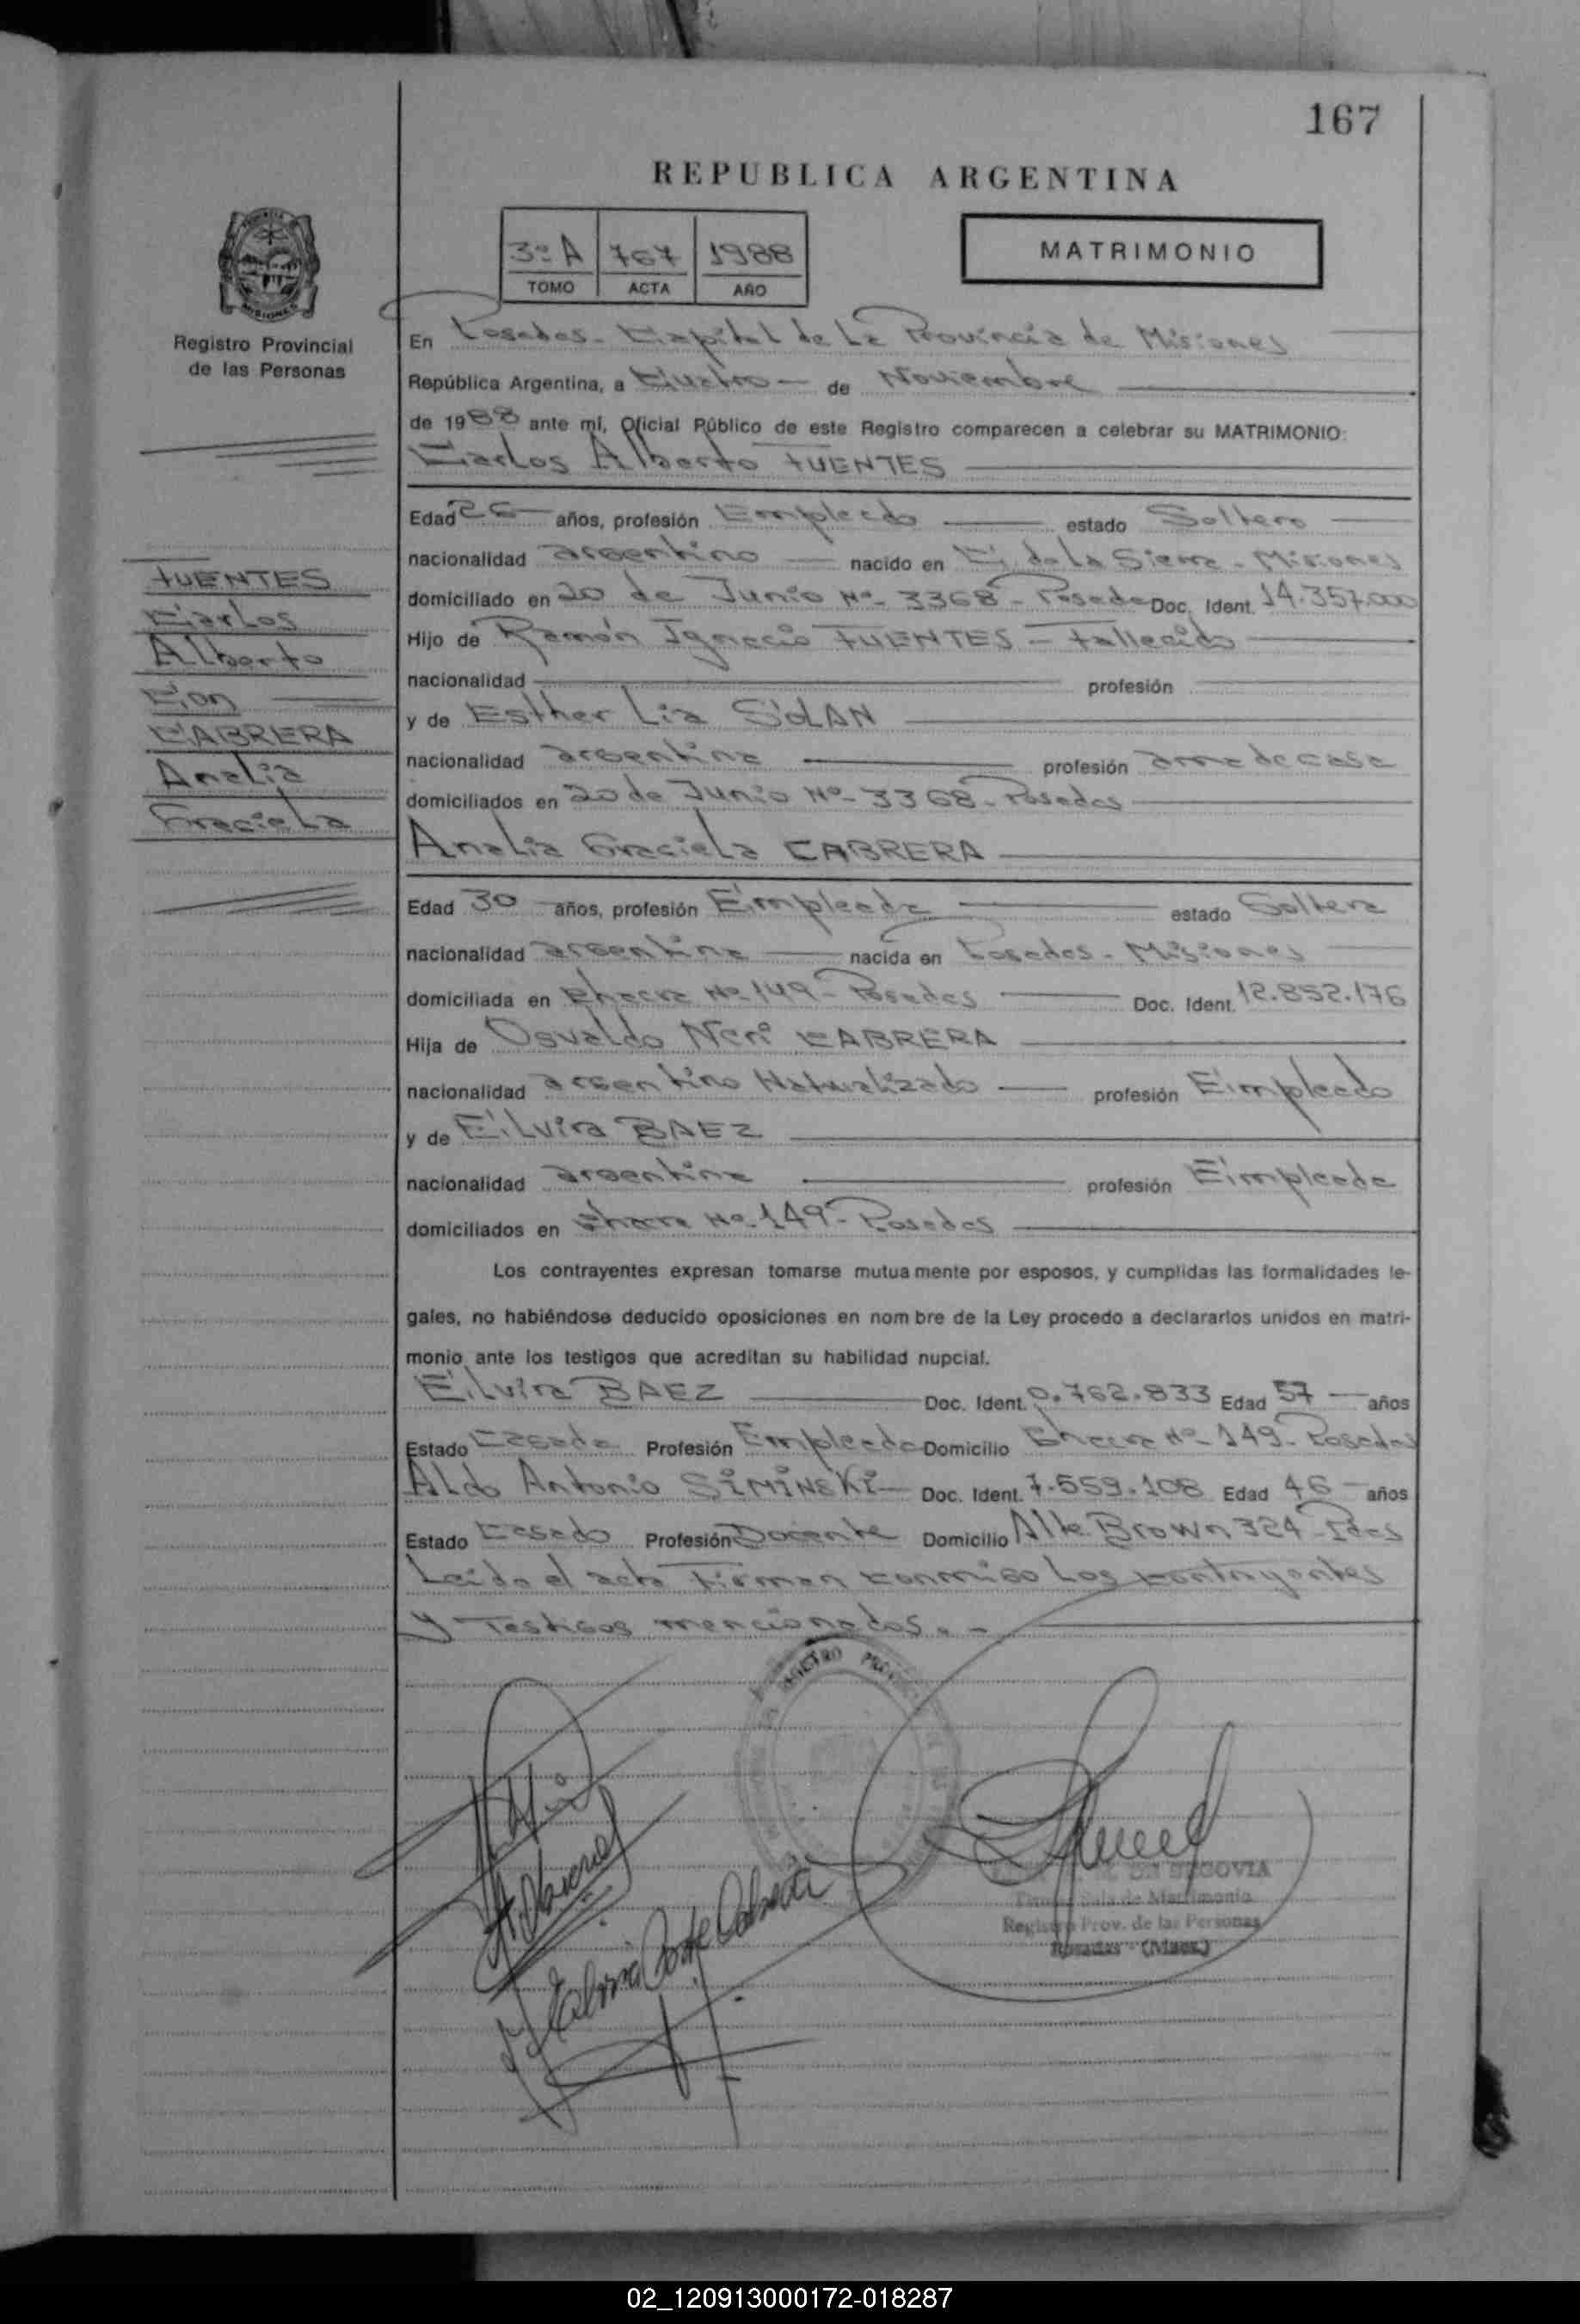 167
REPUBLICA ARGENTINA
3º A 767 1988
TOMO ACTA AÑO
MATRIMONIO
MISIONES
Registro Provincial
de las Personas
FUENTES
Carlos
Alberto
Con
CABRERA
Analia
Graciela
En Posadas - Capital de La Provincia de Misiones
República Argentina, a Cuatro de Noviembre
de 1988 ante mí, Oficial Público de este Registro comparecen a celebrar su MATRIMONIO:
Carlos Alberto FUENTES
Edad 26 años, profesión Empleado estado Soltero
nacionalidad argentino nacido en C. de La Sierra - Misiones
domiciliado en 20 de Junio Nº 3368 - Posadas Doc. Ident. 14.357.000
Hijo de Ramón Ignacio FUENTES - Fallecido
nacionalidad profesión
y de Esther Lia
nacionalidad argentina profesión ama de casa
domiciliados en 20 de Junio Nº 3368 - Posadas
Analia Graciela CABRERA
Edad 30 años, profesión Empleada estado Soltera
nacionalidad argentina nacida en Posadas - Misiones
domiciliada en Chacra Nº 149 - Posadas Doc. Ident. 12.852.176
Hija de Osvaldo Neri CABRERA
nacionalidad argentino Naturalizado profesión Empleado
y de Elvira BAEZ
nacionalidad argentina profesión Empleada
domiciliados en Chacra Nº 149 - Posadas
Los contrayentes expresan tomarse mutuamente por esposos, y cumplidas las formalidades le-
gales, no habiéndose deducido oposiciones en nom bre de la Ley procedo a declararlos unidos en matri-
monio ante los testigos que acreditan su habilidad nupcial.
Elvira BAEZ Doc. Ident. 0.762.833 Edad 57 años
Estado Casada Profesión Empleada Domicilio Chacra Nº 149 - Posadas
Aldo Antonio SiMiNSKi Doc. Ident. 7.559.108 Edad 46 años
Estado Casado Profesión Docente Domicilio Alte. Brown 324 - Pdas
Leida el acta firman conmigo Los contrayentes
y Testigos mencionados. -
REGISTRO
DE SEGOVIA
Titular Sala de Matrimonio
Registro Prov. de las Personas
Posadas - (Mnes.)
02_120913000172-018287